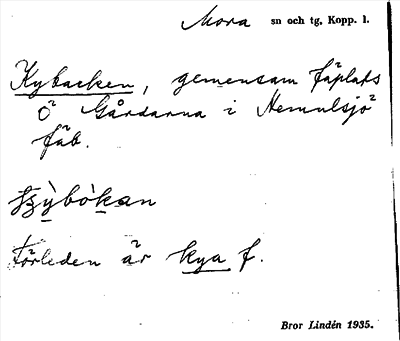 Mora sn och tg, Kopp. l.
Kybacken, gemensam fäplats
Ö Gårdarna i Nemulsjö
fäb.
bòkan
Förleden är kya f.
Bror Lindén 1935.